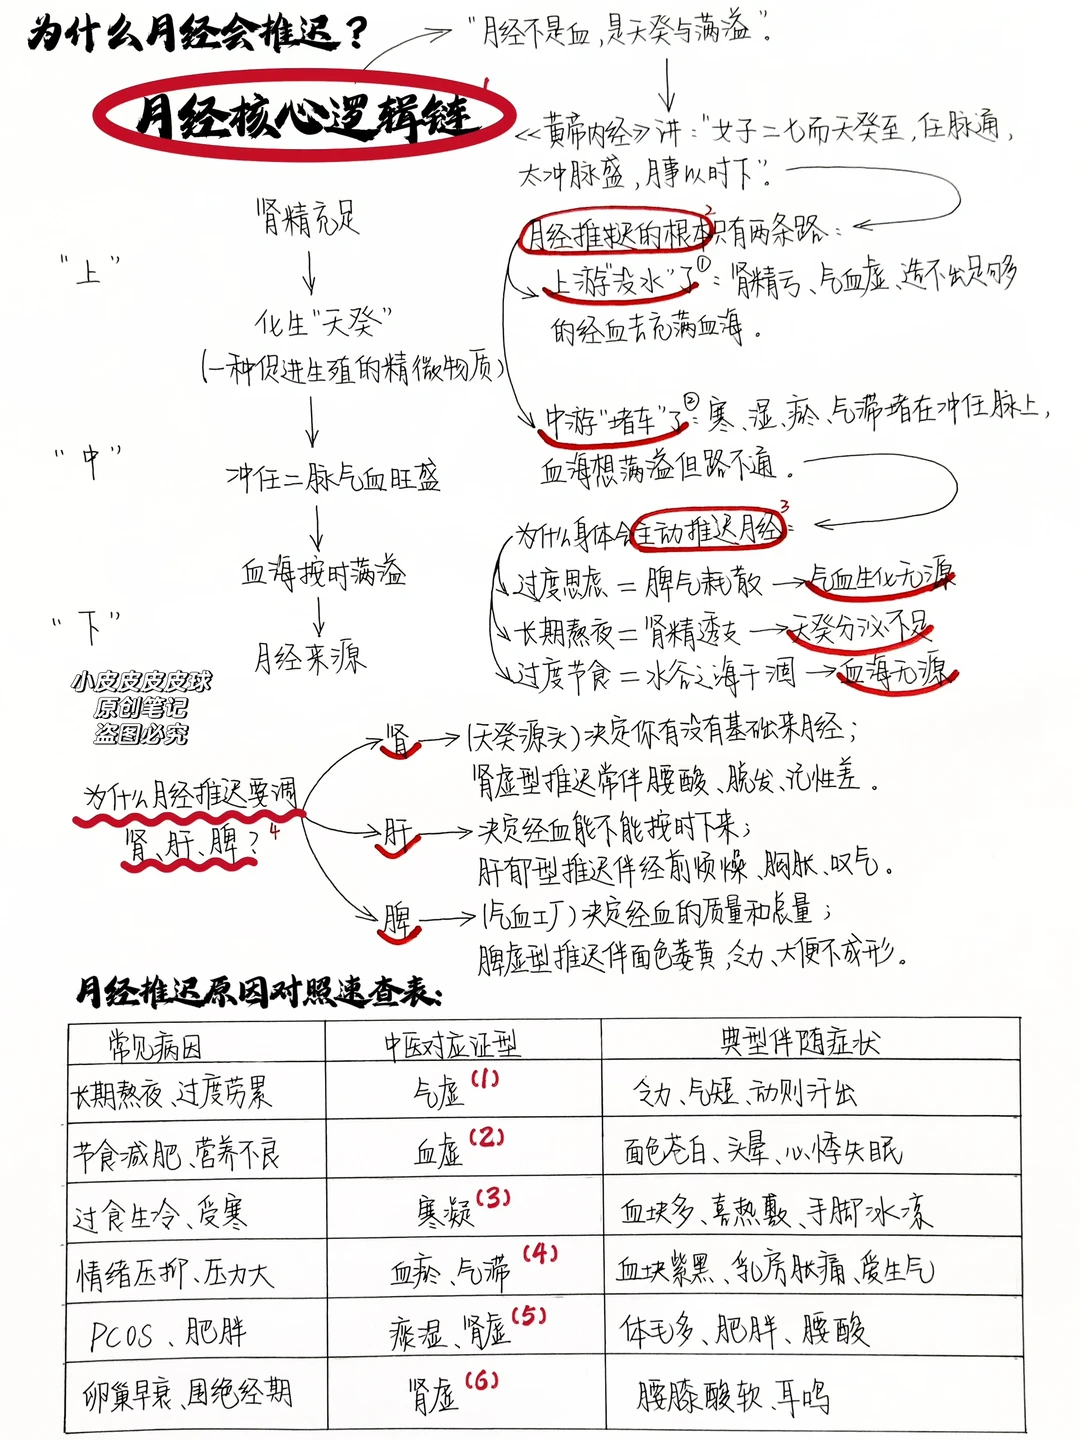 为什么月经会推迟？
月经核心逻辑链 1
"月经不是血，是天癸与满溢"。
<<黄帝内经>>讲："女子二七而天癸至，任脉通，
太冲脉盛，月事以时下"。
肾精充足
"上"
化生"天癸"
(一种促进生殖的精微物质)
"中"
冲任二脉气血旺盛
血海按时满溢
"下"
月经来源
月经推迟的根本只有两条路： 2
上游"没水"了①：肾精亏、气血虚、造不出足够
的经血去充满血海。
中游"堵车"了②：寒、湿、瘀、气滞堵在冲任脉上，
血海想满溢但路不通。
为什么身体会主动推迟月经： 3
过度思虑＝脾气耗散→气血生化无源
长期熬夜＝肾精透支→天癸分泌不足
过度节食＝水谷之海干涸→血海无源
小皮皮皮皮球
原创笔记
盗图必究
为什么月经推迟要调
肾、肝、脾？ 4
肾→(天癸源头)决定你有没有基础来月经；
肾虚型推迟常伴腰酸、脱发、记性差。
肝→决定经血能不能按时下来；
肝郁型推迟伴经前烦燥、胸胀、叹气。
脾→(气血工厂)决定经血的质量和总量；
脾虚型推迟伴面色萎黄，乏力、大便不成形。
月经推迟原因对照速查表：
常见病因 中医对应证型 典型伴随症状
长期熬夜、过度劳累 气虚(1) 乏力、气短、动则汗出
节食减肥、营养不良 血虚(2) 面色苍白、头晕、心悸失眠
过食生冷、受寒 寒凝(3) 血块多、喜热敷、手脚冰凉
情绪压抑、压力大 血瘀、气滞(4) 血块紫黑、乳房胀痛、爱生气
PCOS、肥胖 痰湿、肾虚(5) 体毛多、肥胖、腰酸
卵巢早衰、围绝经期 肾虚(6) 腰膝酸软、耳鸣